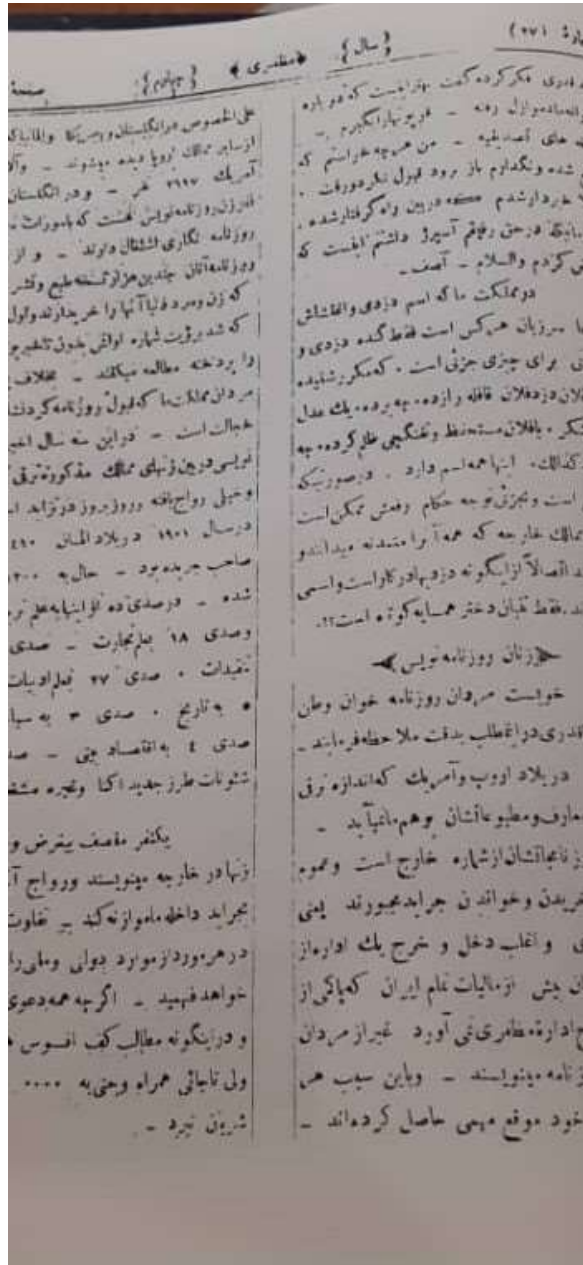 (۲۷)
{سال} مظفری {چهارم} صفحهٔ
قدری فکر کرده گفت بهتر اینست که دو باره
های تصدیقیه - من هر چه خواستم که
شده و نگذارم باز برود قبول نکرد و رفت .
خبردار شدم که در بین راه گرفتار شده .
در حق رفیقم آسپرژ داشتم اینست که
کردم والسلام - آصف -
در مملکت ما که اسم دزدی و اغتشاش
سر زبان هر کس است فقط گله دزدی و
برای چیزی جزئی است . که مکرر شنیده
فلان دزد فلان قافله را زده . چه برده . یک عدل
شکر . یا فلان مستحفظ و تفنگچی ظلم کرده . چه
کذالك . اینها همه اسم دارد . در صورتیکه
است و بجزئی توجه حکام رفعش ممکن است
ممالک خارجه که همه آنرا متمدنه میدانند و
اتصالاً از اینگونه دزدیها در کار است و اسمی
فقط نقبان دختر همسایه کوتاه است؟!.
زنان روزنامه نویس
خوبست مردان روزنامه خوان وطن
قدری در این مطلب بدقت ملاحظه فرمایند -
در بلاد اروپ و آمریک که اندازه ترقی
معارف و مطبوعاتشان بوهم ما نمی‌آید -
روزنامجاتشان از شماره خارج است و عموم
خریدن و خواندن جراید مجبورند یعنی
و اغلب دخل و خرج یک اداره از
بیش از مالیات تمام ایران که یاکی از
ادارهٔ مظفری نمی آورد غیر از مردان
نامه مینویسند - و باین سبب هر
خود موقع مهمی حاصل کرده‌اند -
علی الخصوص در انگلیستان و امریکا والمانیا که
از سایر ممالک اروپا دیده میشوند -
آمریک ۲۱۹۳ نفر - و در انگلستان
قدر زن روزنامه نویس هست که بامورات
روزنامه نگاری اشتغال دارند - و از
روزنامه آنان چندین هزار نسخه طبع و نشر
که زن و مرد دنیا آنها را خریدارند و پول
که شد برؤیت شماره اولش بدون تاخیر
را پرداخته مطالعه میکنند - بخلاف
مردان مملکت ما که قبول روزنامه کردن
خجالت است - در این سه سال اخیر
نویسی در بین زنهای ممالک مذکوره ترقی
و خیلی رواج یافته و روز بروز در تزاید
در سال ۱۹۰۱ در بلاد المان ۴۱۰
صاحب جریده بود - حال به
شده - در صدی ده نفر اینها به علم
و صدی ۱۸ بعلم تجارت - صدی
تنقیدات . صدی ۲۷ بعلم ادبیات
۵ به تاریخ . صدی ۳ به
صدی ٤ به اقتصاد بیتی -
شئونات طرز جدید اکتا و غیره
یکنفر منصف بیغرض
زنها در خارجه مینویسند و رواج
بجراید داخله ما موازنه کند تفاوت
در هر مورد از موارد دولتی و ملتی را
خواهد فهمید - اگر چه همه دعوی
و در اینگونه مطالب کف افسوس
ولی تا جائی همراه و جنی به ۰۰۰۰
شریون نبرد -